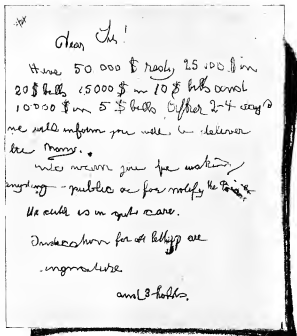 Dear Sir!
Have 50.000 $ redy 25 000 $ in
20 $ bills 15000 $ in 10 $ bills and
10000 $ in 5 $ bills After 2-4 days
we will inform you were to deliver
the mony.
We warn you for making
anyding public or for notify the Police
the child is in gut care.
Indication for all letters are
singnature
and 3 holds.